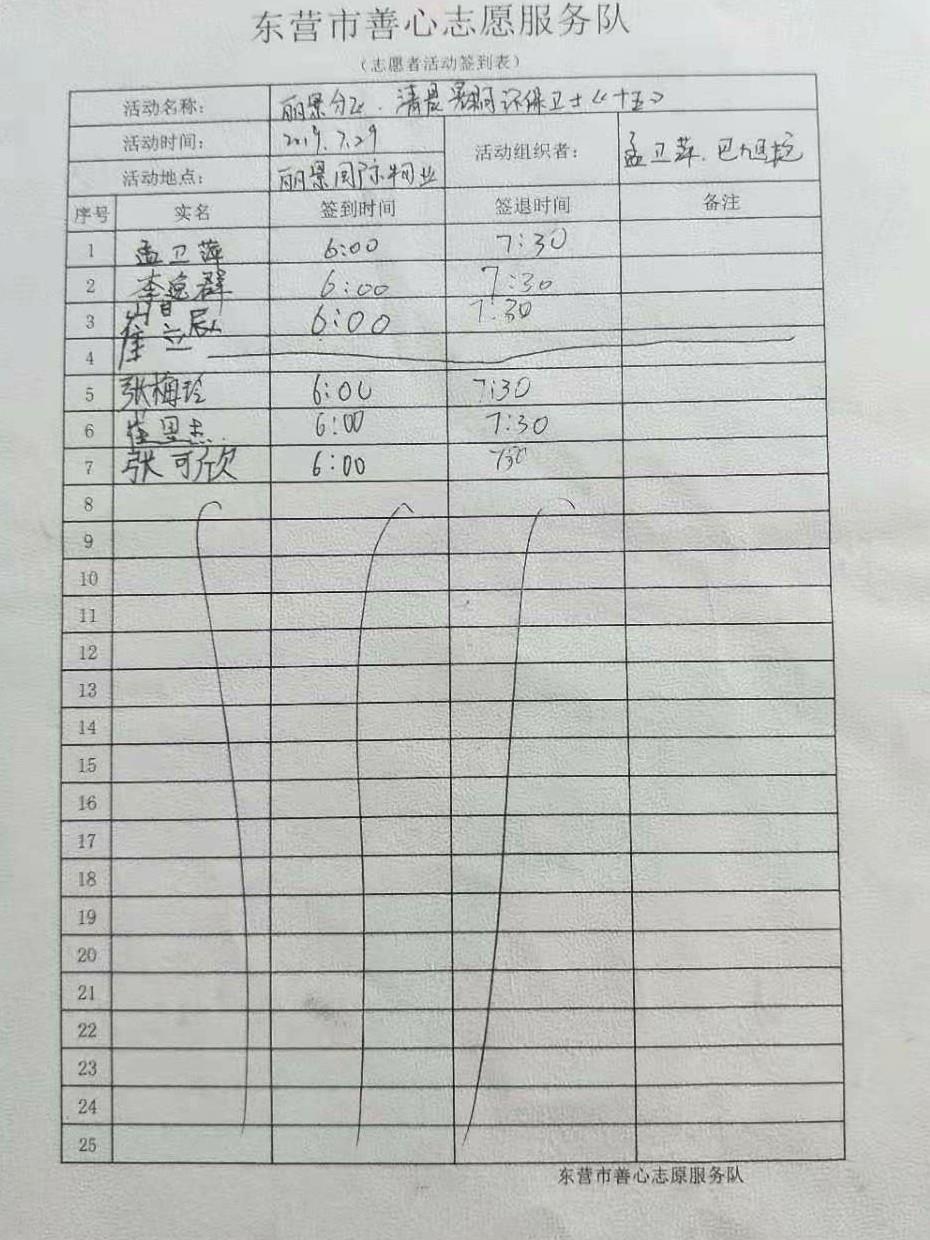 东营市善心志愿服务队
（志愿者活动签到表）
活动名称： 丽景分队．清晨 环保卫士《十五》
活动时间： 2019.7.29
活动组织者： 孟卫萍．巴旭艳
活动地点： 丽景国际物业
序号 实名 签到时间 签退时间 备注
1 孟卫萍 6:00 7:30
2 李逸群 6:00 7:30
3 崔 辰 6:00 7:30
4
5 张梅玲 6:00 7:30
6 崔思杰． 6:00 7:30
7 张可欣 6:00 730
8
9
10
11
12
13
14
15
16
17
18
19
20
21
22
23
24
25
东营市善心志原服务队